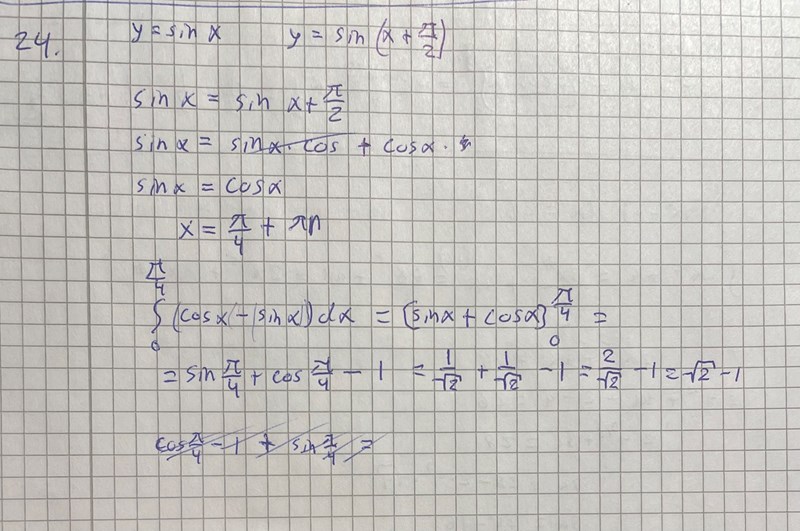 24. y = sin x y = sin (x + π/2)
sin x = sin x + π/2
sin x = sin x · cos + cos x ·
sin x = cos x
x = π/4 + πn
∫₀^{π/4} (cos x - (sin x)) dx = [sin x + cos x]₀^{π/4} =
= sin π/4 + cos π/4 - 1 = 1/√2 + 1/√2 - 1 = 2/√2 - 1 = √2 - 1
cos π/4 - 1 + sin π/4 =